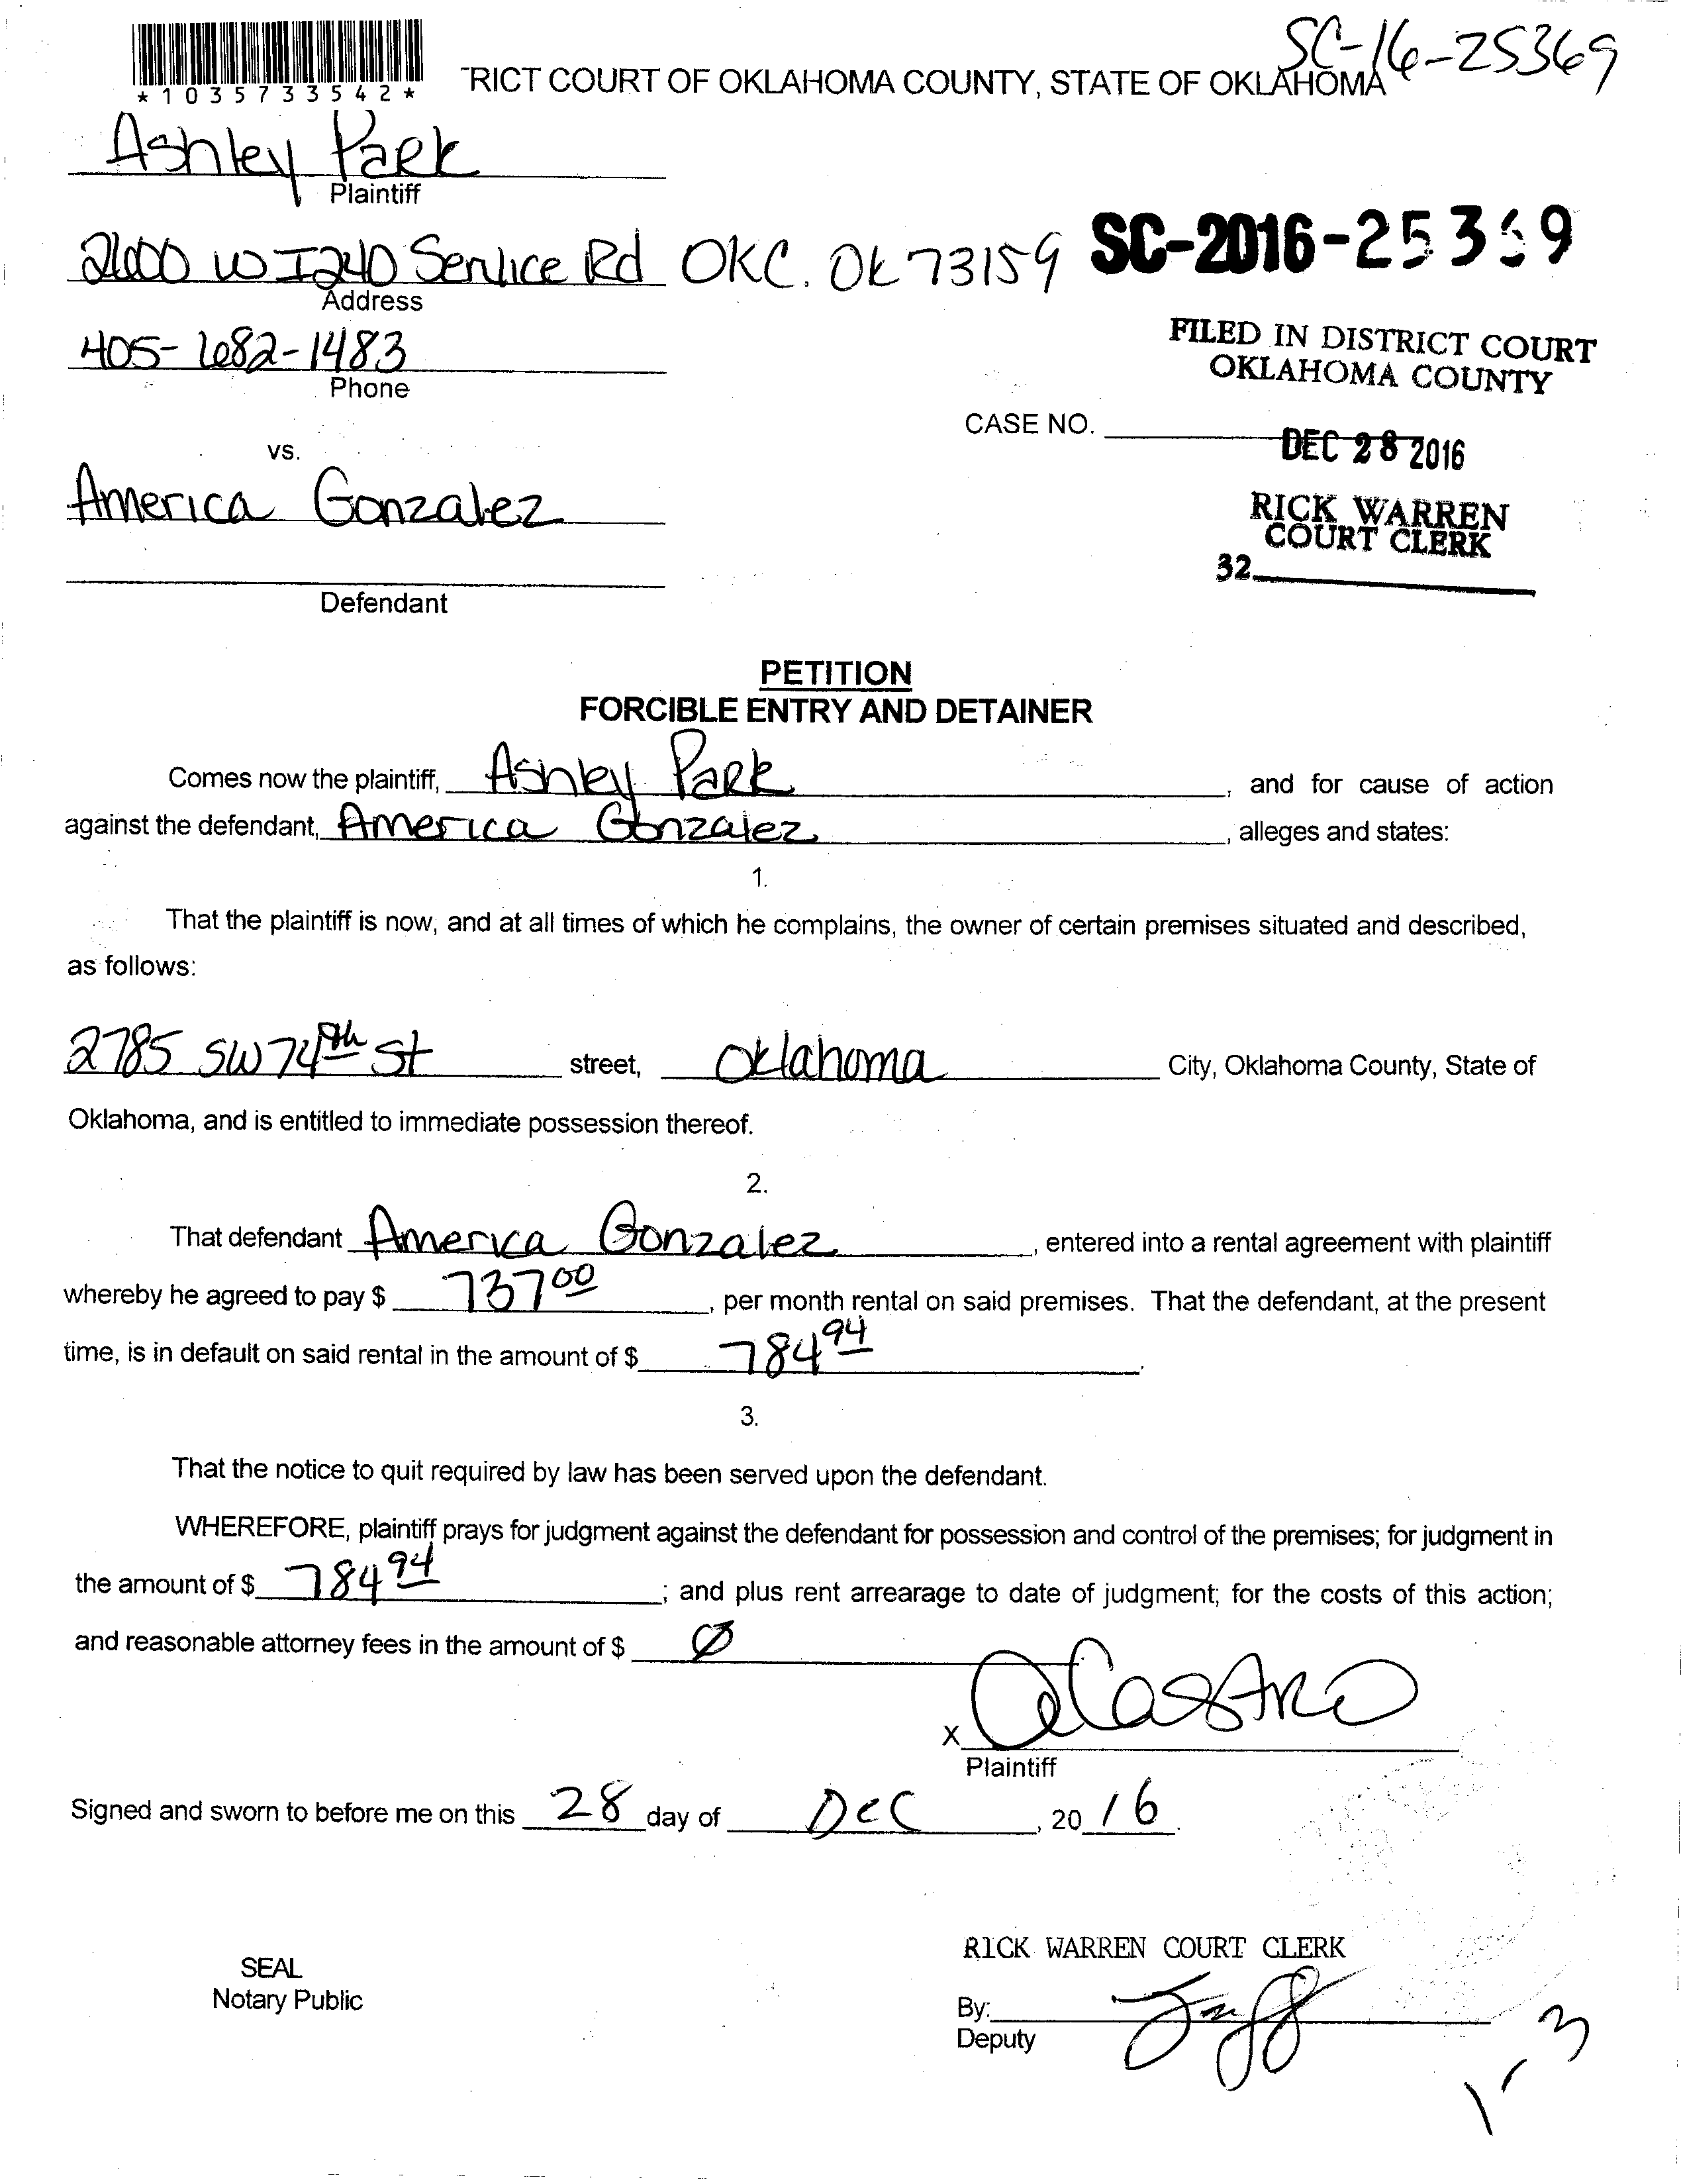 SC-16-25369
*1035733542*
RICT COURT OF OKLAHOMA COUNTY, STATE OF OKLAHOMA
Ashley Park
Plaintiff
2600 W I240 Service Rd OKC. OK 73159
SC-2016-25369
Address
FILED IN DISTRICT COURT
OKLAHOMA COUNTY
405-682-1483
Phone
CASE NO.
DEC 28 2016
vs.
America Gonzalez
RICK WARREN
COURT CLERK
32
Defendant
PETITION
FORCIBLE ENTRY AND DETAINER
Comes now the plaintiff, Ashley Park, and for cause of action
against the defendant, America Gonzalez, alleges and states:
1.
That the plaintiff is now, and at all times of which he complains, the owner of certain premises situated and described,
as follows:
2785 SW 74th St street, Oklahoma City, Oklahoma County, State of
Oklahoma, and is entitled to immediate possession thereof.
2.
That defendant America Gonzalez, entered into a rental agreement with plaintiff
whereby he agreed to pay $ 737 00, per month rental on said premises. That the defendant, at the present
time, is in default on said rental in the amount of $ 784 94.
3.
That the notice to quit required by law has been served upon the defendant.
WHEREFORE, plaintiff prays for judgment against the defendant for possession and control of the premises; for judgment in
the amount of $ 784 94; and plus rent arrearage to date of judgment; for the costs of this action;
and reasonable attorney fees in the amount of $ Ø
X ACastro
Plaintiff
Signed and sworn to before me on this 28 day of Dec, 2016.
RICK WARREN COURT CLERK
SEAL
Notary Public
By:
Deputy
1-3